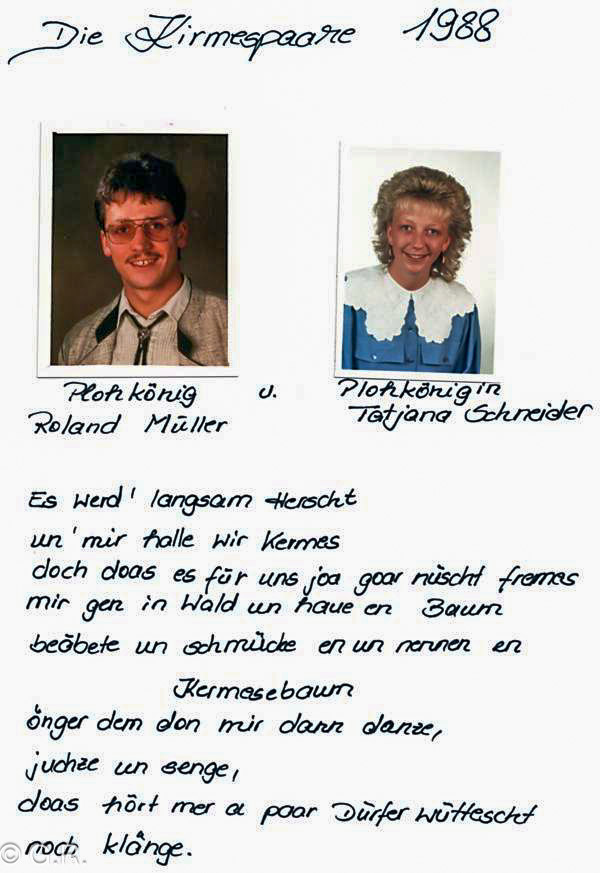 Die Kirmespaare 1988
Plotzkönig u. Plotzkönigin
Roland Müller Tatjana Schneider
Es werd' langsam Herscht
un' mir halle wir Kermes
doch doas es für uns joa goar nüscht fremes
mir gen in Wald un haue en Baum
beäbete un schmücke en un nennen en
Kermesebaum
önger dem don mir dann danze,
juchze un senge,
doas hört mer a paar Dürfer wüttescht
noch klänge.